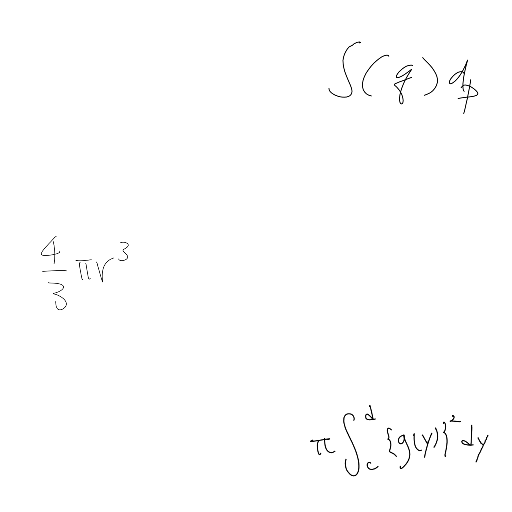 ∫(g)dp
4/3 πr³
π∫_c^d {g(y)}² dy